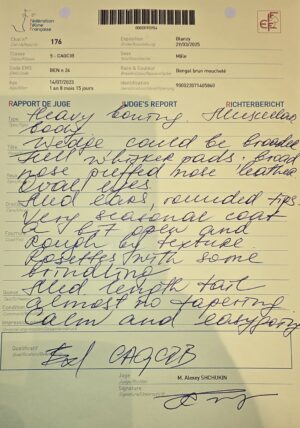 fédération féline française
Chat n° 176
Exposition Blancy
29/03/2025
Classe 5 - CAGCIB
Sexe Mâle
Code EMS BEN n 24
Race & Couleur
Bengal brun moucheté
Age 14/07/2023
1 an 8 mois 15 jours
RAPPORT DE JUGE JUDGE'S REPORT RICHTERBERICHT
Heavy boning. Musculus
body
Wedge could be broader
Full whisker pads. broad
nose puffed nose leather
Oval eyes
Med ears, rounded tips
Very seasonal coat
a bit open and
rough by texture
Rosettes with some
brindling
Med length tail
almost no tapering
Calm and easygoing
Qualificatif
Ex1 CAGCIB
Juge M. Alexey SHCHUKIN
Signature